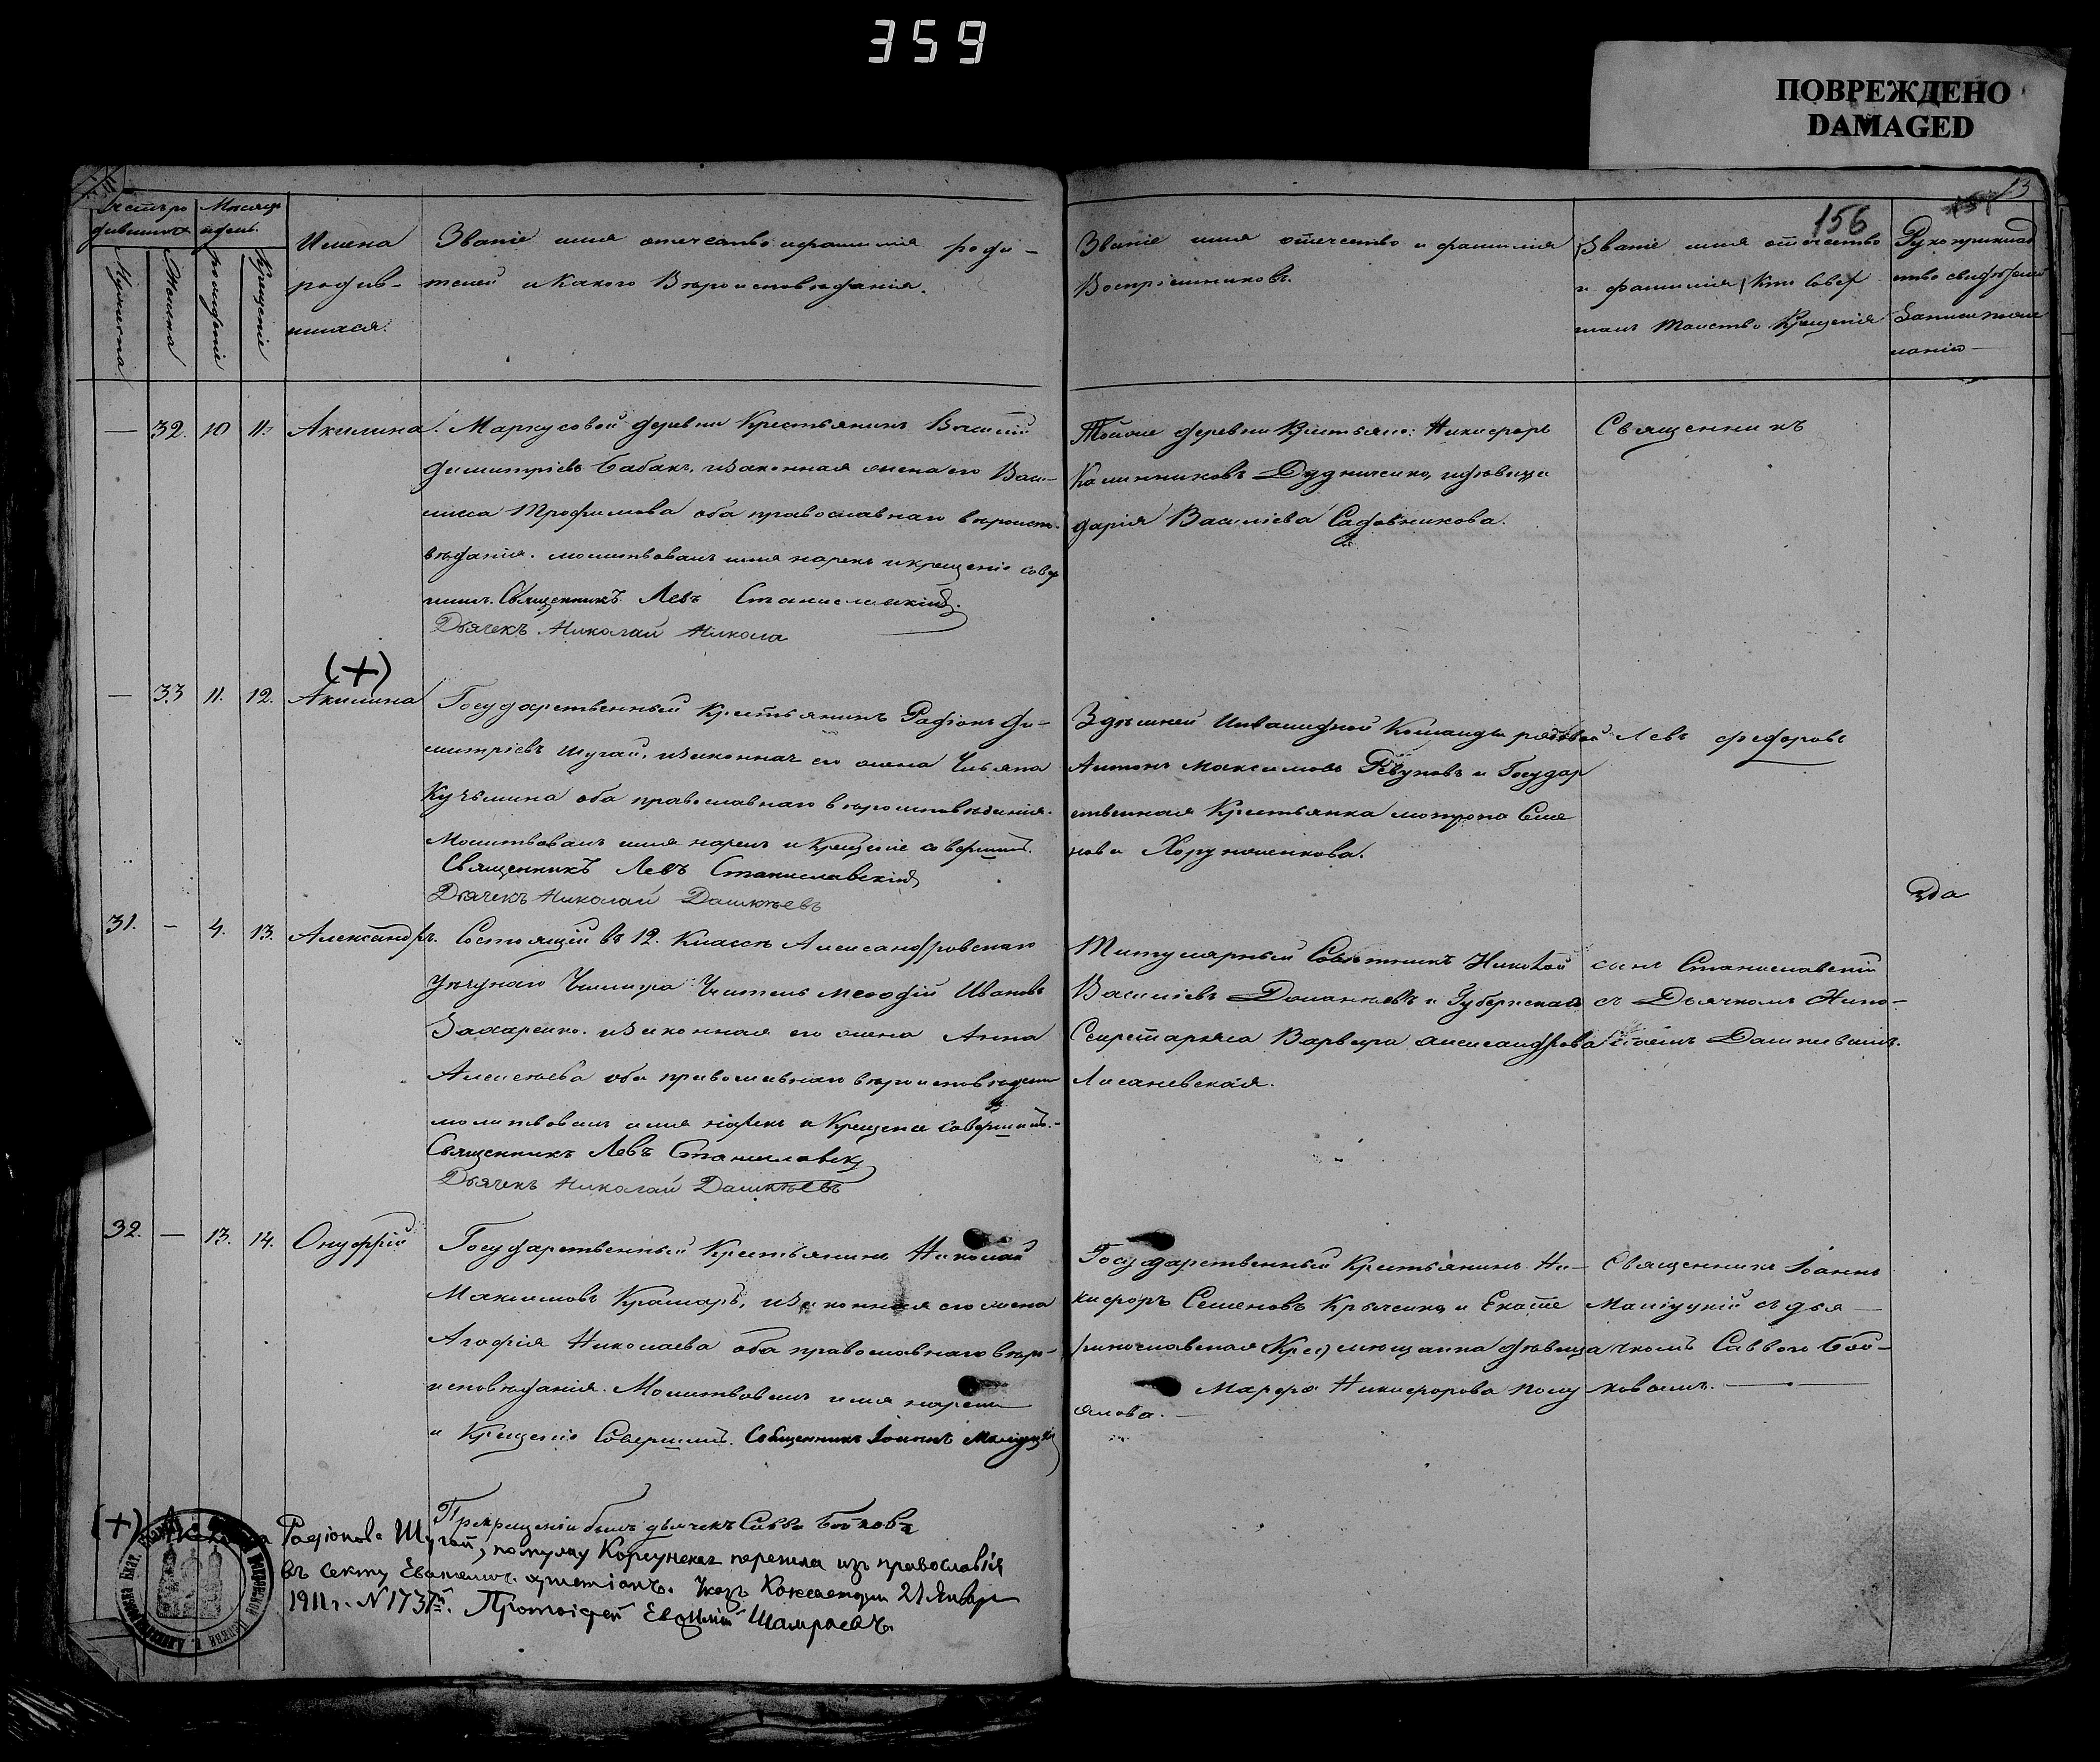 359
ПОВРЕЖДЕНО
DAMAGED
13
156
Мужеска
Женска
рожденіе
Крещеніе
Имена
родив-
шихся.
Званіе имя отчество и фамилія роди-
телей и Какого Вероисповеданія.
Званіе имя отечество и фамилія
Воспріемниковъ.
Званіе имя отечество
и фамилія, Кто совер
шалъ таинство Крещенія
— 32. 10 11. Акилина.
Маркусовой деревни Крестьянинъ Василій
Димитріевъ Бабакъ, и законная жена его Васи-
лисса Трофимова оба православнаго вероиспо-
веданія. молитвовалъ имя нарекъ и крещеніе совер
шилъ. Священникъ Левъ Станиславскій.
Дьячекъ Николай
Тойже деревни Крестьяне: Никифоръ
Калинниковъ Дудниченко, и девица
дарія Василіева Садовникова.
Священникъ
(+)
— 33 11. 12. Акилина
Государственный Крестьянинъ Радіонъ Ди-
митріевъ Шугай, и законная его жена Ульяна
Кузьмина оба православнаго вероисповеданія.
Молитвовалъ имя нарекъ и Крещеніе совершилъ.
Священникъ Левъ Станиславскій
Дьячекъ Николай Дашкѣевъ
Здѣшней Инвалидной Команды рядовой
Антонъ Максимовъ Ревуновъ и Государ
ственная Крестьянка мотрона Семе
нова Хоружженкова.
Левъ федоровъ
31. — 4. 13. Александръ.
Состоящій въ 12. Классѣ Александровскаго
Уѣзднаго Училища Учитель меѳодій Ивановъ
Захаренко. и законная его жена Анна
Алексѣева оба православнаго вероисповедан
молитвовалъ имя нарекъ и Крещеніе совершилъ.
Священникъ Левъ Станиславскій
Дьячекъ Николай Дашкѣевъ
Титулярный Совѣтникъ Николай
Василіевъ и Губернская
Секретарша Варвара александрова
Лисаневская.
сынъ Станиславскій
съ Дьячкомъ Нико-
лаемъ Дашкевымъ.
32. — 13. 14. Онуфрій
Государственный Крестьянинъ Николай
Максимовъ Крамарь, и законная его жена
Агафія Николаева оба православнаго веро-
исповеданія. Молитвовалъ имя нарекъ
и Крещеніе Совершилъ. Священникъ Іоаннъ
При крещеніи былъ дьячекъ Савва
Государственный Крестьянинъ Ни-
кифоръ Семеновъ и Екате
ринославская мещанка девица
Марфа Никифорова Полу
янова.
Священникъ Іоаннъ
съ дья-
чкомъ Саввою Бой-
ковымъ.
(+) Акилина Радіонова Шугай, по мужу Корсунская перешла изъ православія
въ секту Евангелич. христіанъ. Указъ Консисторіи 21 Января
1911 г. N 1737й. Протоіерей Евѳимій Шамраевъ.